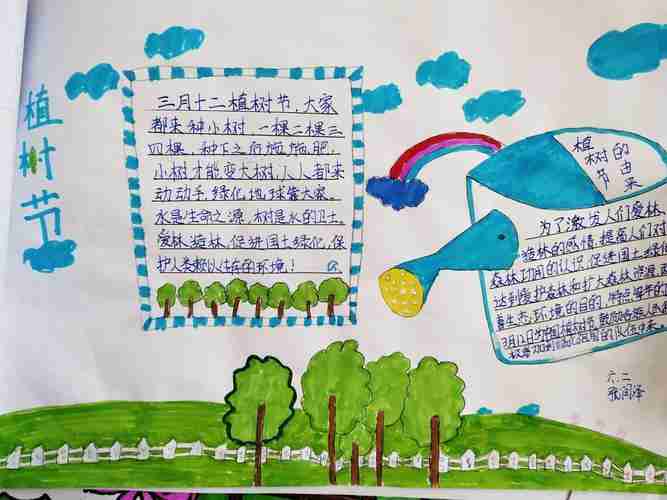 植树节
三月十二植树节,大家
都来种小树,一棵二棵三
四棵,种下之后施施肥。
小树才能变大树,人人都来
动动手,绿化地球靠大家。
水是生命之源,树是水的卫士。
爱林造林,促进国土绿化,保
护人类赖以生存的环境!
植树节的由来
为了激发人们爱林
造林的感情,提高人们对
森林功用的认识,促进国土绿
达到爱护森林和扩大森林资源
善生态环境的目的
3月12日为中国植树节,鼓励
六.二
张闰泽